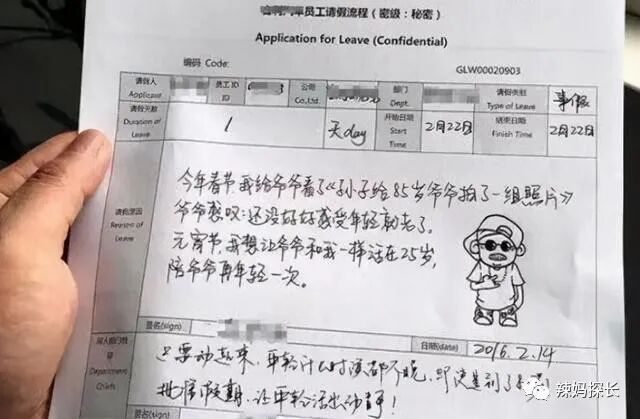 汽车员工请假流程（密级：秘密）
Application for Leave (Confidential)
编码 Code: GLW00020903
请假人 员工ID 公司 部门 请假类别 事假
Applicant ID Co.,Ltd. Dept. Type of Leave
请假天数 1 天day 开始日期 2月22日 结束日期 2月22日
Duration of Leave Start Time Finish Time
请假原因
Reason of Leave
今年春节我给爷爷看了《孙子给85岁爷爷拍了一组照片》
爷爷感叹:还没好好感受年轻就老了。
元宵节,我想让爷爷和我一样活在25岁,
陪爷爷再年轻一次。
签名(sign) 日期(date) 2016.2.14
Department Chiefs
只要动起来，年轻什么时候都不晚，
批准假期，让年轻活出动静！
辣妈探长